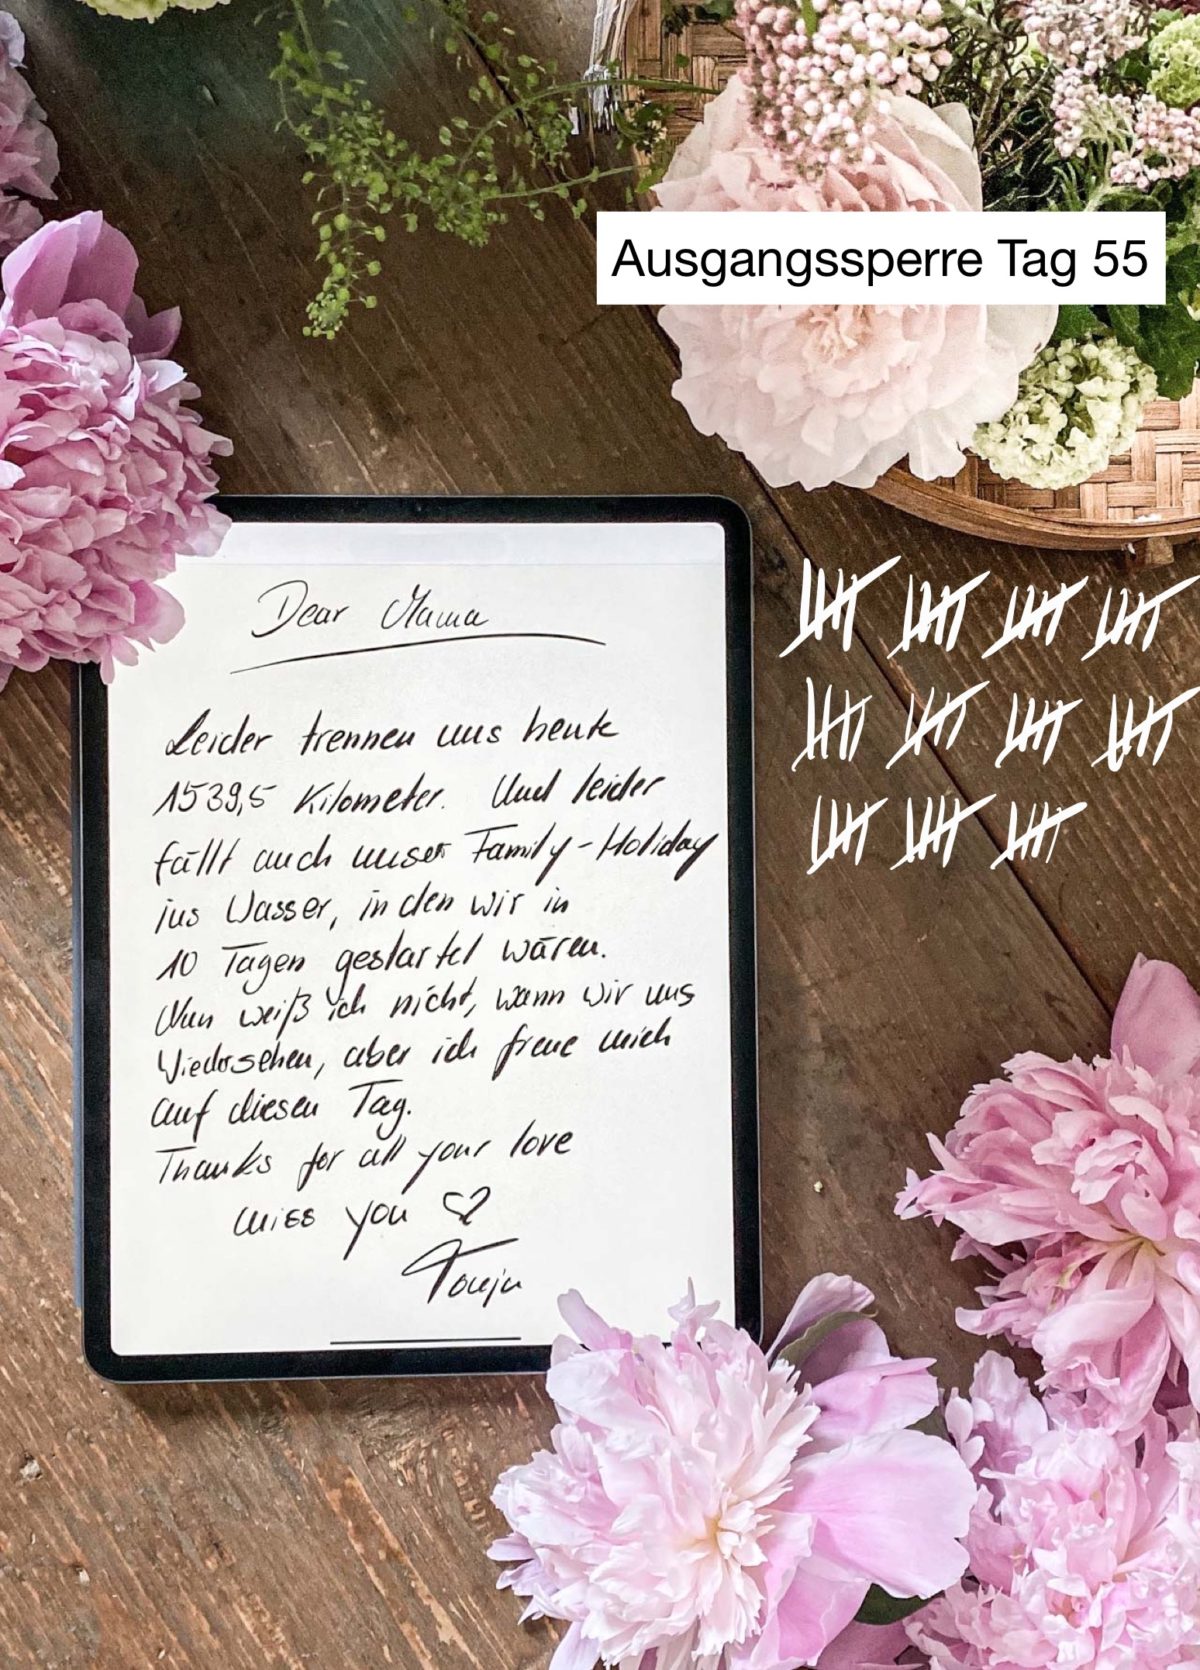 Ausgangssperre Tag 55
Dear Mama
Leider trennen uns heute
1539,5 Kilometer. Und leider
fällt auch unser Family-Holiday
ins Wasser, in den wir in
10 Tagen gestartet wären.
Nun weiß ich nicht, wann wir uns
Wiedersehen, aber ich freue mich
auf diesen Tag.
Thanks for all your love
miss you ♡
Tonju